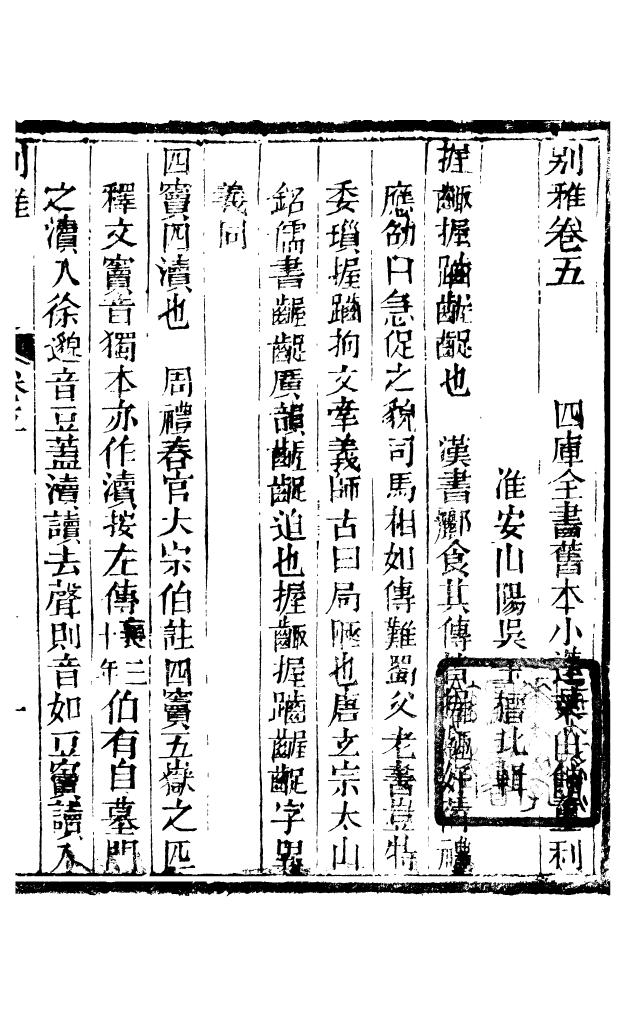 别雅卷五　　　四庫全書舊本小蓬萊山館重刋
淮安山陽吳玉搢北輯
握齱握䠱齷齪也　漢書酈食其傳握齱好苛禮
應劭曰急促之貌司馬相如傳難蜀父老書豈特
委瑣握䠱拘文牽義師古曰局陿也唐玄宗太山
銘儒書齷齪廣韻齷齪迫也握齱握䠱齷齪字異
義同
四竇四瀆也　周禮春官大宗伯註四竇五嶽之匹
釋文竇音獨本亦作瀆按左傳襄三十年伯有自墓門
之瀆入徐邈音豆葢瀆讀去聲則音如豆竇讀入
别雅　卷五　一